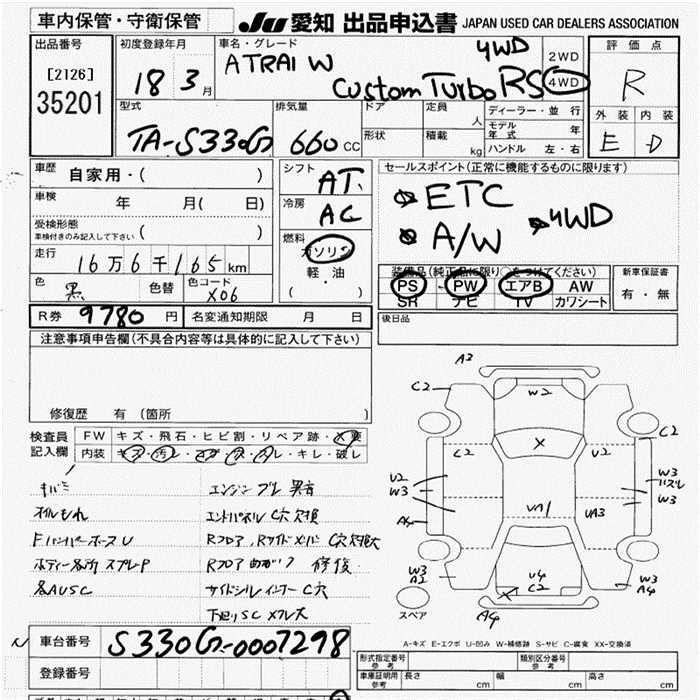 車内保管・守衛保管
JU 愛知 出品申込書 JAPAN USED CAR DEALERS ASSOCIATION
出品番号
[2126]
35201
初度登録年月
18 3 月
車名・グレード
ATRAI W 4WD
Custom Turbo RS
2WD
4WD
評価点
R
外装 内装
E D
型式
TA-S330G
排気量
660 CC
ドア
形状
定員 人
積載 kg
ディーラー・並行
モデル年式 年
ハンドル 左・右
車歴
自家用・( )
車検 年 月( 日)
受検形態
車検付きのみ記入して下さい ( )
走行
16万6千165km
色 黒 色替 色コード X06
シフト AT
冷房 AC
燃料
ガソリン
軽・油
( )
セールスポイント(正常に機能するものに限ります)
ETC
A/W
4WD
装備品(純正品に限り○をつけてください)
PS PW エアB AW
SR ナビ TV カワシート
新車保証書
有・無
R券 9780 円 名変通知期限 月 日
後日品
注意事項申告欄(不具合内容等は具体的に記入して下さい)
修復歴 有 (箇所 )
検査員
記入欄
FW キズ・飛石・ヒビ割・リペア跡・X要
内装 キレ・破レ
キバミ
オイルもれ
ボディー各所 スプレーP
各AUSC
エンジンブレ 異音
エンドパネル C穴 欠損
修復
サイドシル インナー C穴
下廻りSC メクレ大
A3
C2
W2
C2
C2
X
U2
U2
W3
W3
A4
UA1
UA3
W3
W3
A2
W3
A4
U4
C2
X
A4
スペア
A-キズ E-エクボ U-凹み W-補修跡 S-サビ C-腐食 XX-交換済
車台番号 S330G-0007298
登録番号
形式指定番号
参考
類別区分番号
参考
車庫証明用
参考
長さ cm 幅 cm 高さ cm